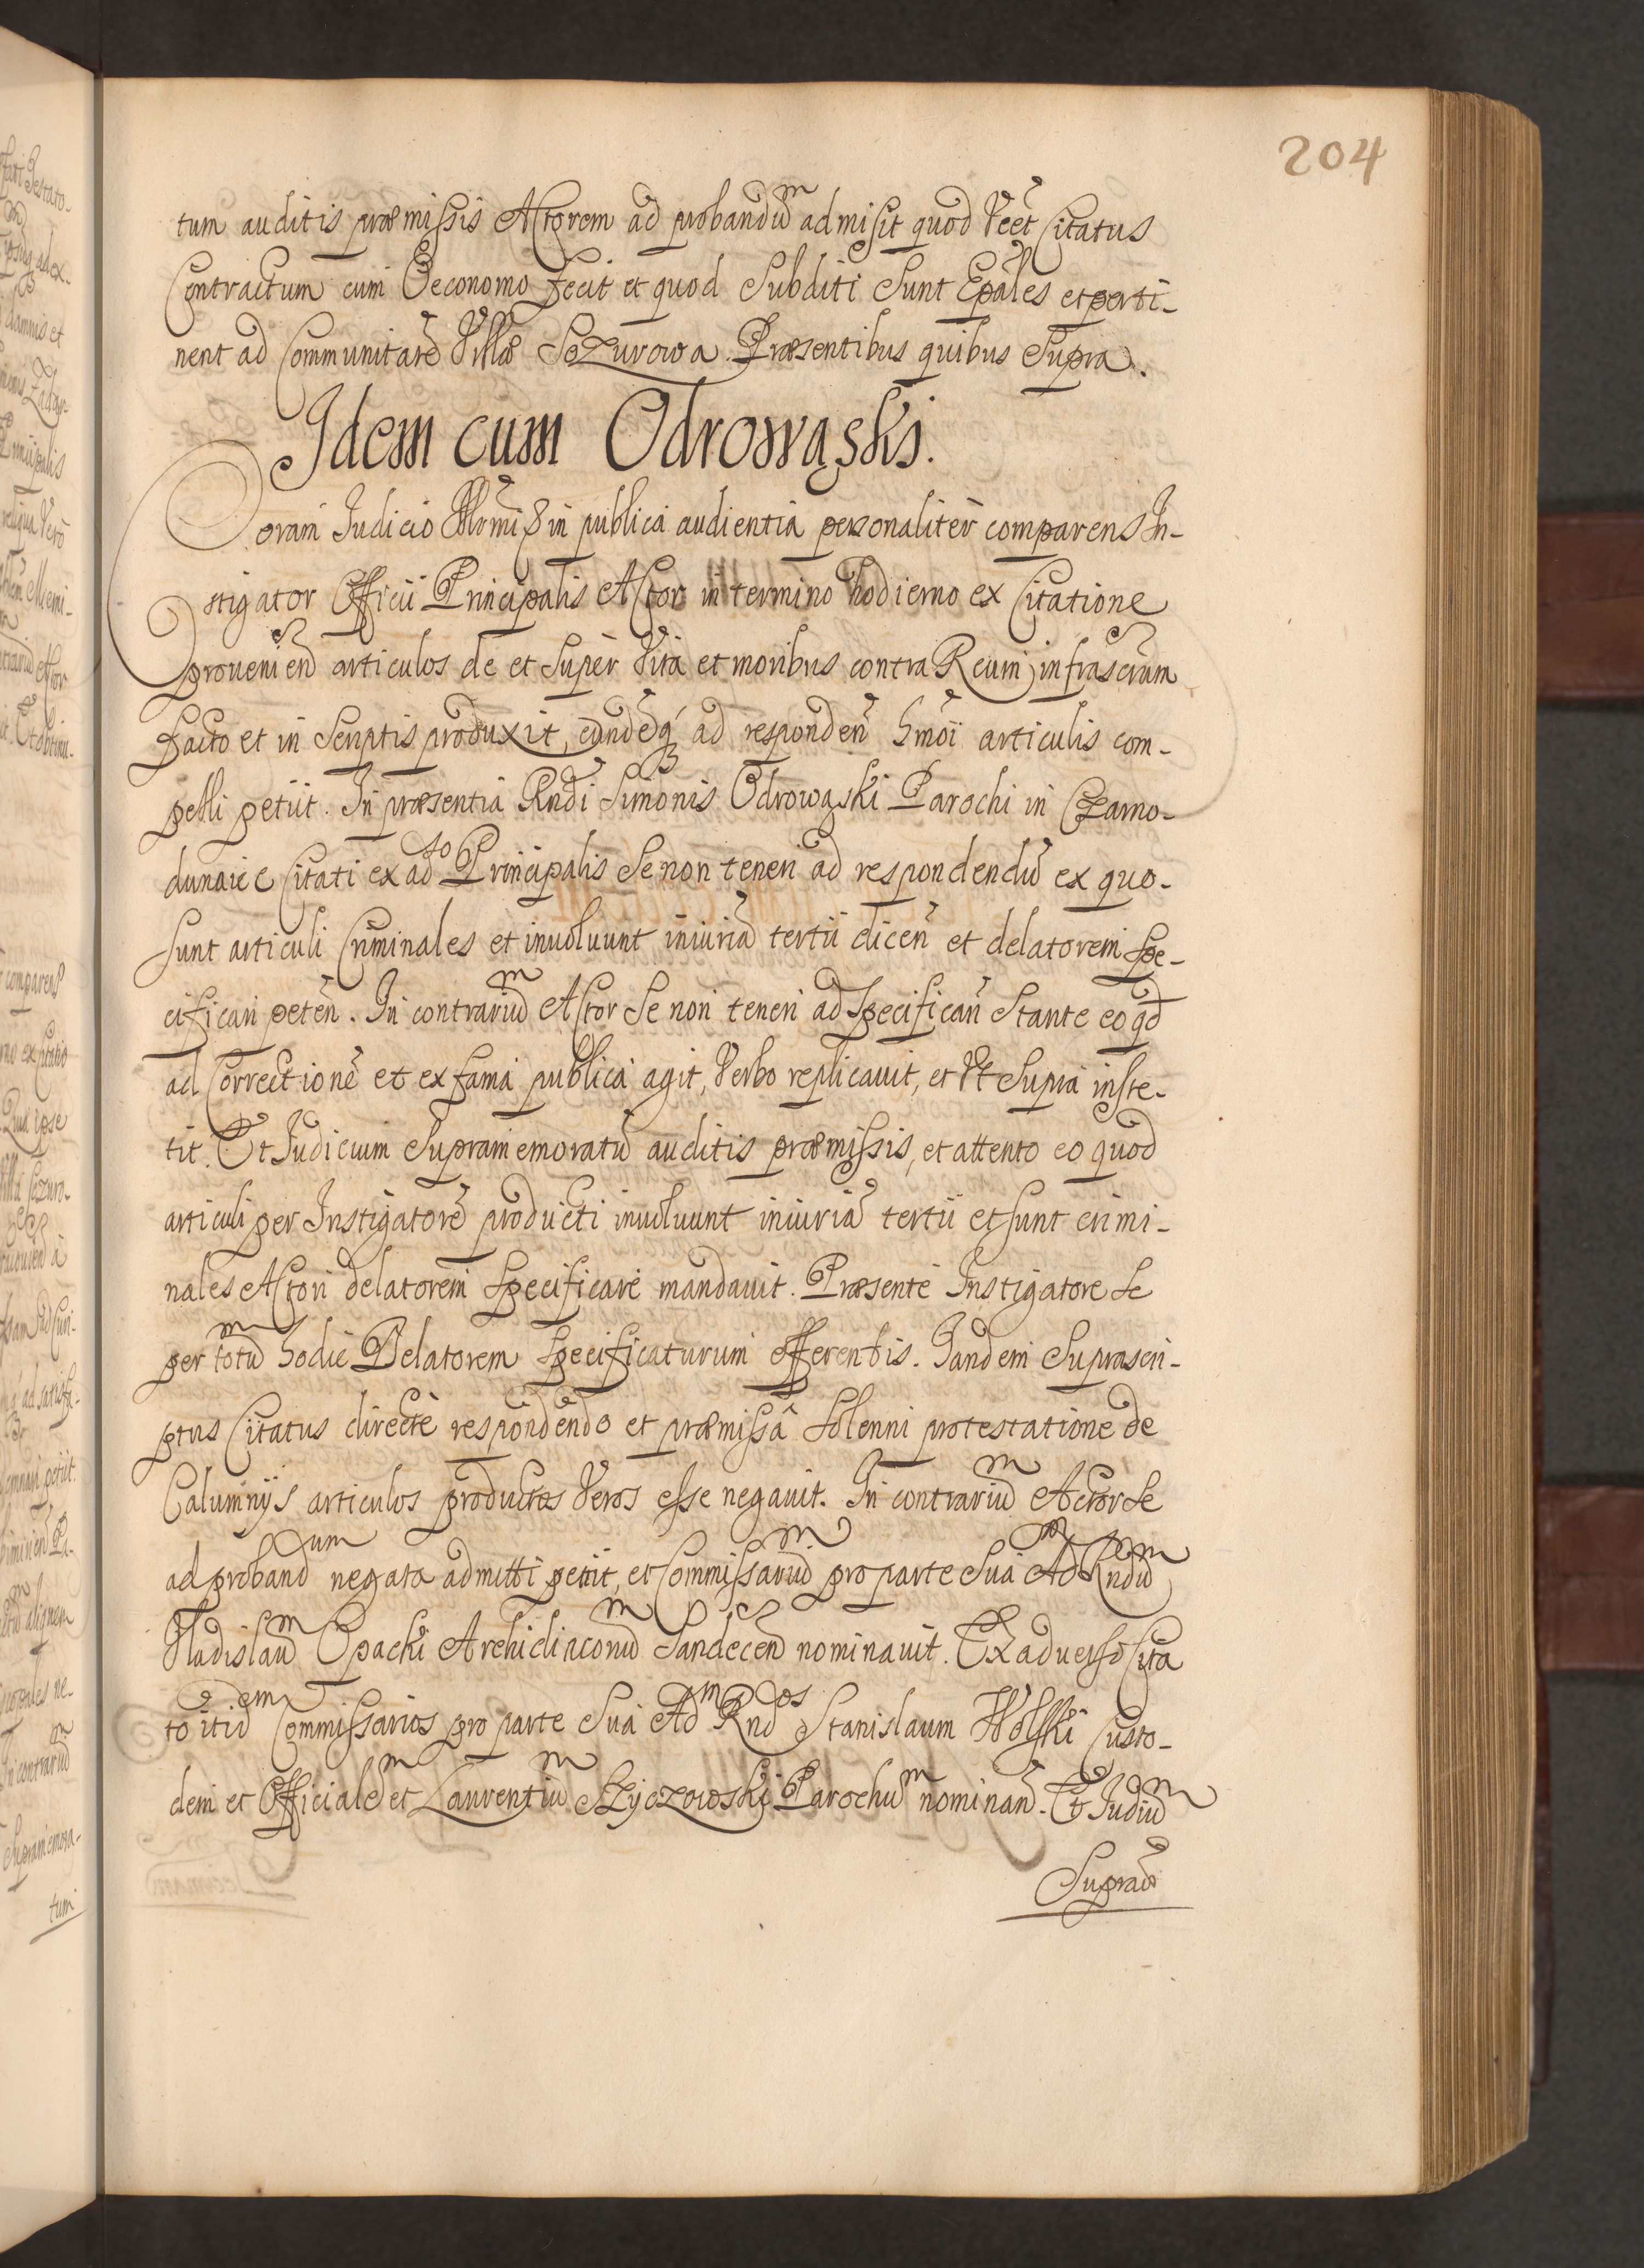 204
tum auditis præmissis Actorem ad probandũm admisit quod Citatus
Contractum cum Oeconomo fecit et quod Subditi Sunt Epãles et perti-
nent ad Communitatẽ Villæ Sczurowa. Præsentibus quibus Supra.
Idem cum Odrowąski.
Coram Judicio in publica audientia personaliter comparens In-
stigator Officii Principalis Actor in termino hodierno ex Citatione
proueniend articulos de et Super Vita et moribus contra Reum infrascrum
facto et in Scriptis produxit, eundẽq́ ad respondeñ hmõi articulis com-
pelli petiit. In præsentia Rndi Simonis Odrowąski Parochi in Czarno-
dunaiec Citati ex adso Principalis Se non teneri ad respondendũ ex quo-
Sunt articuli Criminales et inuoluunt iniuriã tertii diceñ et delatorem Spe-
cificari peteñ. In contrariũm Actor Se non teneri ad Specificañ Stante eo qd
ad Correctionẽ et ex fama publica agit, Verbo replicauit, et Vt Supra inste-
tit. Et Judicium Supramemoratũ auditis præmissis, et attento eo quod
articuli per Instigatorẽ producti inuoluunt iniuriã tertii et sunt crimi-
nales Actori delatorem Specificare mandauit. Præsente Instigatore Se
per totũm hodie Delatorem Specificaturum offerentis. Tandem Suprascri-
ptus Citatus directe respondendo et præmissâ Solenni protestatione de
Calumnijs articulos productos Veros esse negauit. In contrariũm Actor Se
ad proband um negata admitti petiit, et Commissariũm pro parte Sua Adm Rndũm
Vladislaũm Opacki Archidiaconũm Sandeceñ nominauit. Ex aduerso Cita
to itid em Commissarios pro parte Sua Adm Rnd os Stanislaum Wolski Custo-
dem et Officialem et Laurentiũm Parochũm nominañ. Et Judiũm
Supra